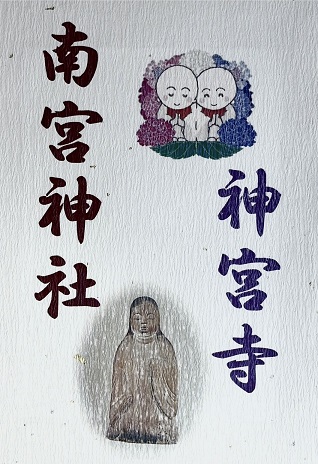 神宮寺
南宮神社